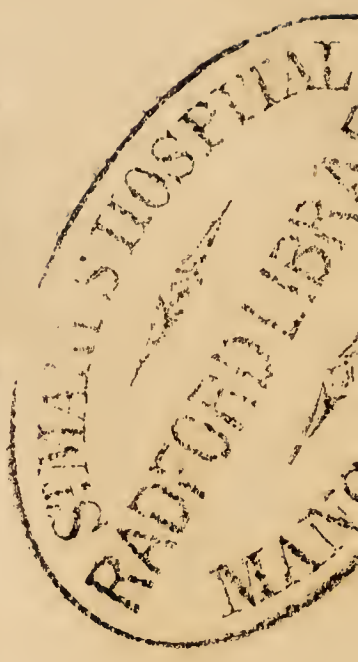 ST MARY'S HOSPITAL
RADFORD LIBRA
MANC